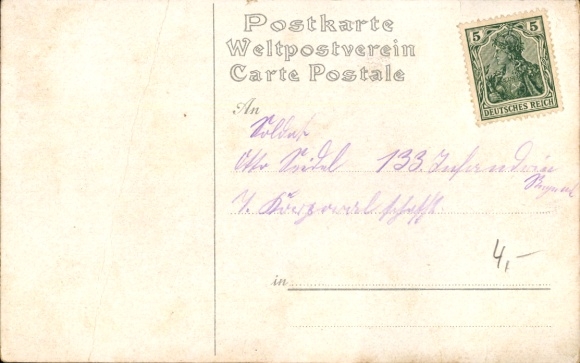 Postkarte
Weltpostverein
Carte Postale
5 5
DEUTSCHES REICH
An
Soldat
Otto Seidel 133. Infanterie
Regiment
Korporalschaft
4,–
in